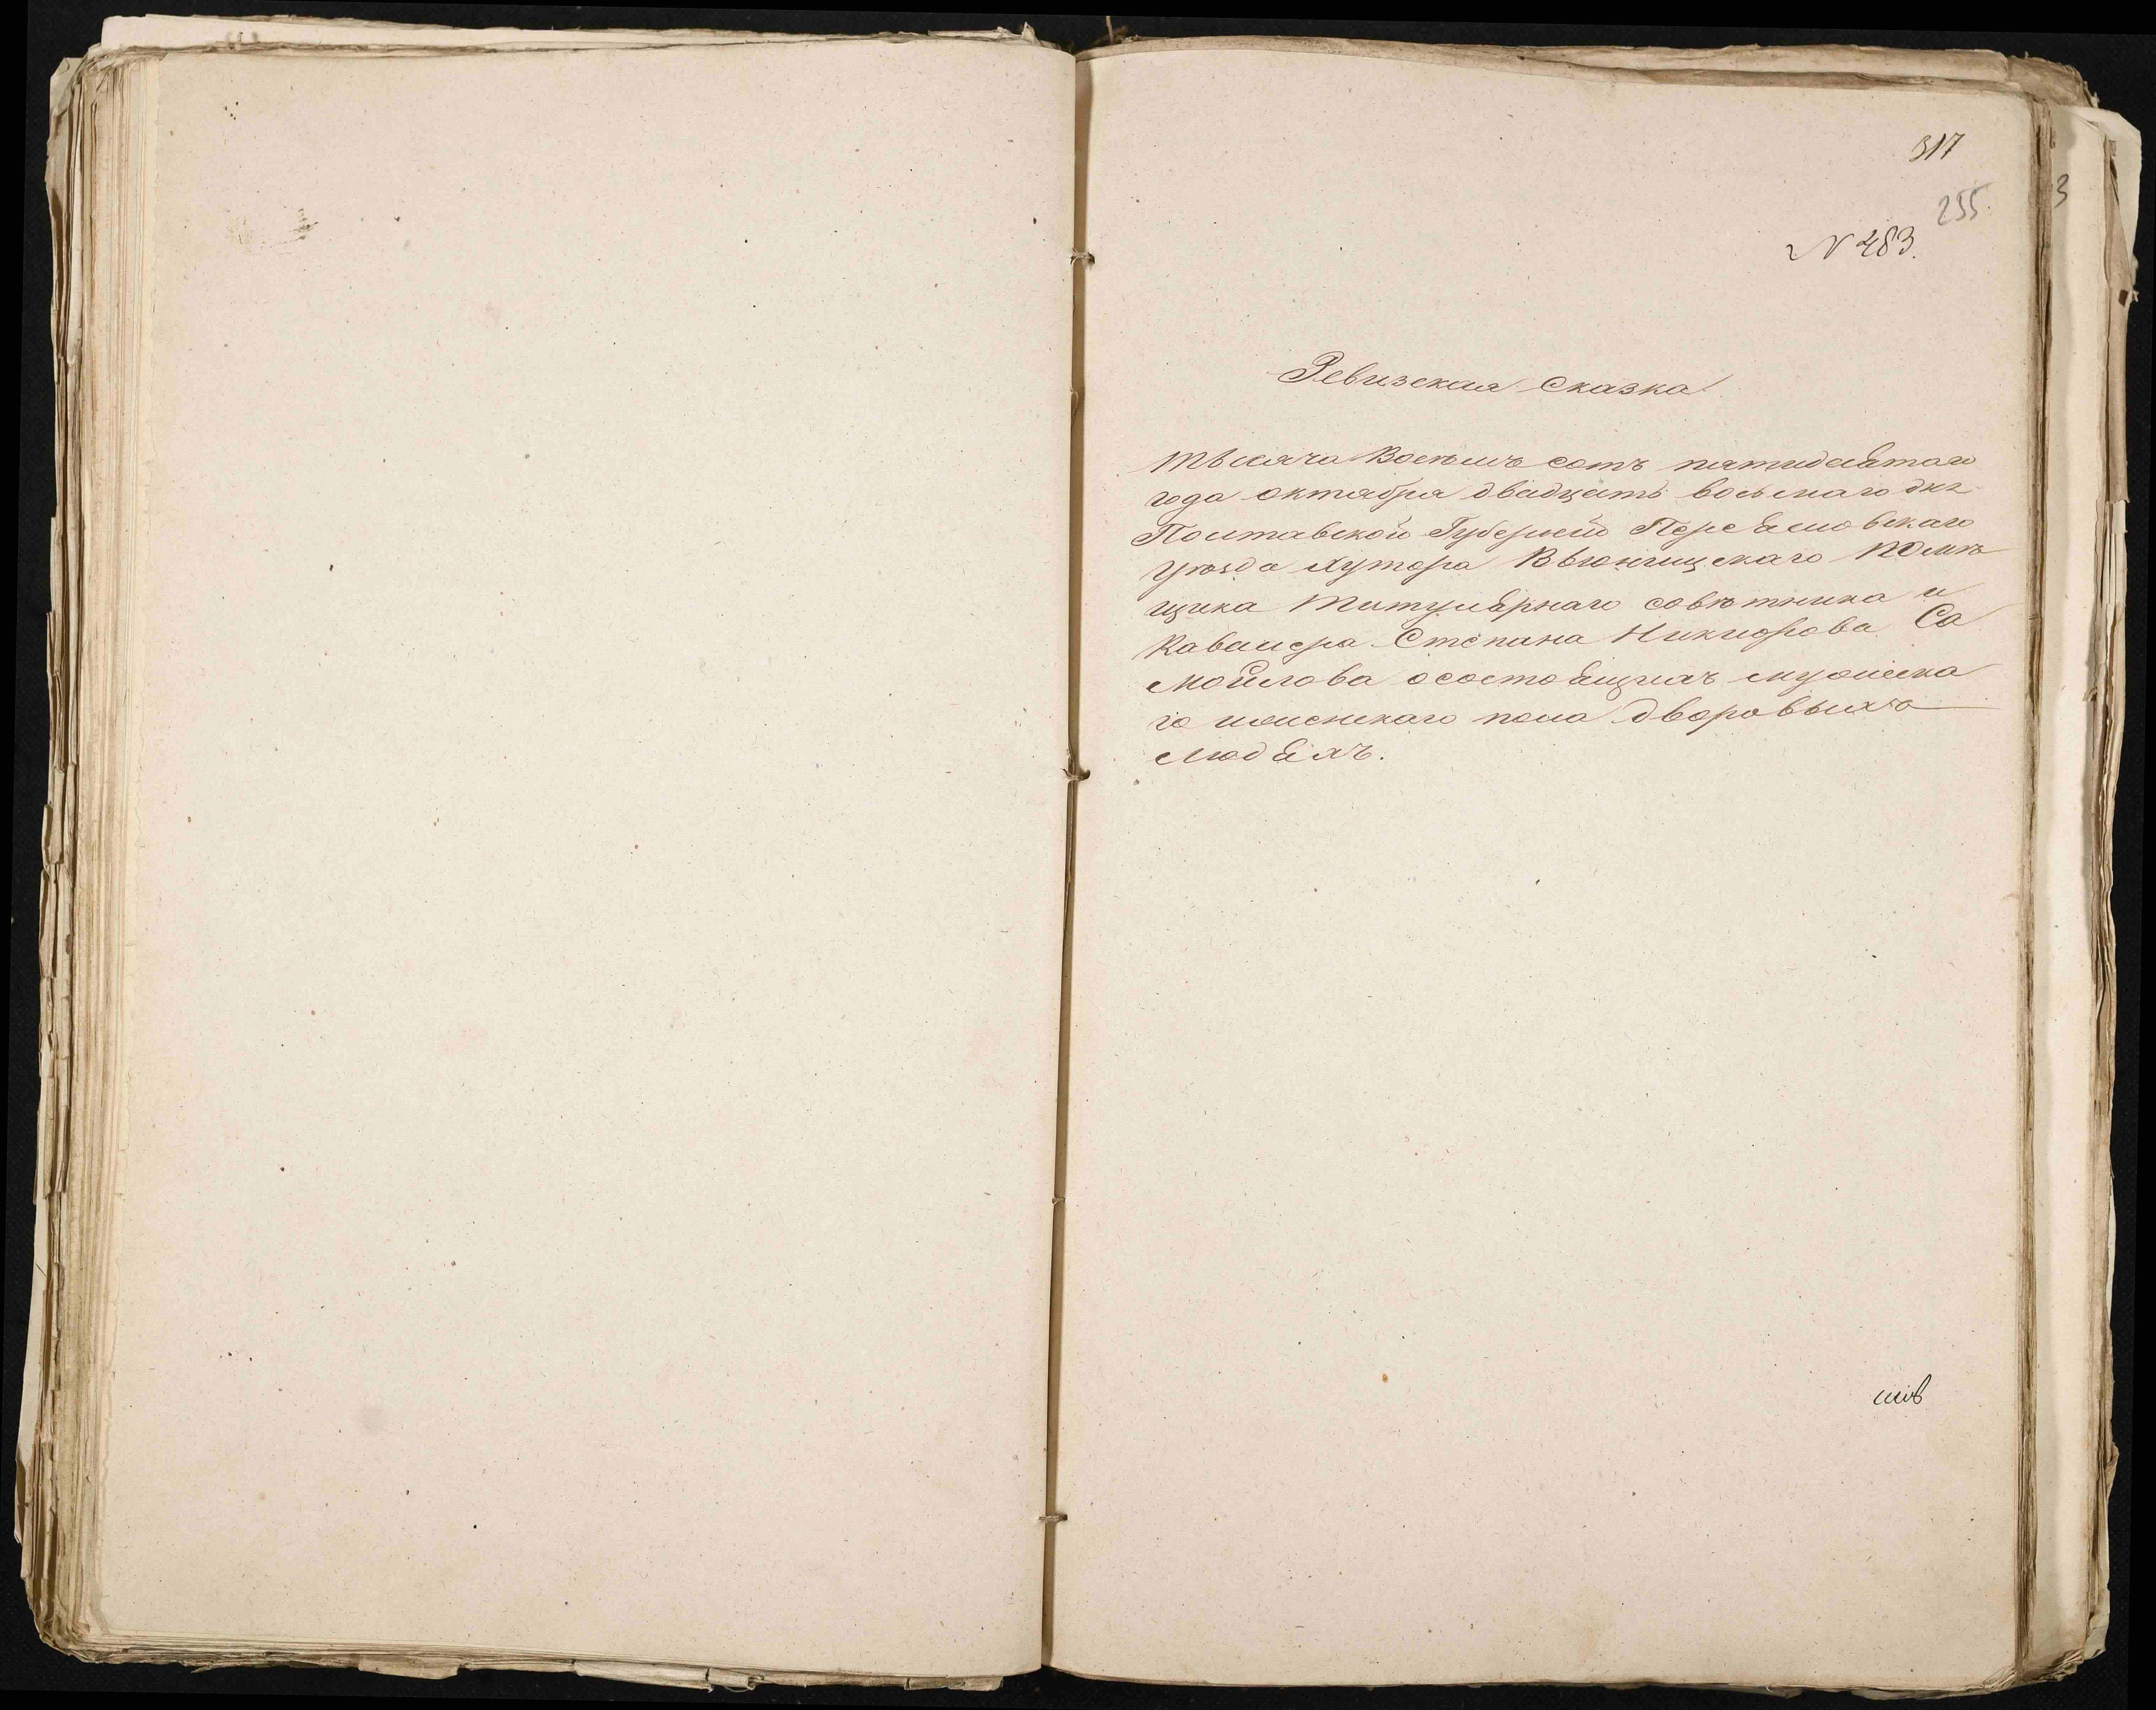 317
255.
3
N 283.
Ревизская Сказка
тысяча Восемь сотъ пятидесятаго
года октября двадцать восьмаго дня
Полтавской Губерніи Переясловскаго
уезда хутора Вьюнищскаго Помѣ
щика Титулярнаго совѣтника и
Кавалера Степана Никифорова Са
мойлова о состоящихъ мужеска
го и женскаго пола дворовыхъ
людяхъ.